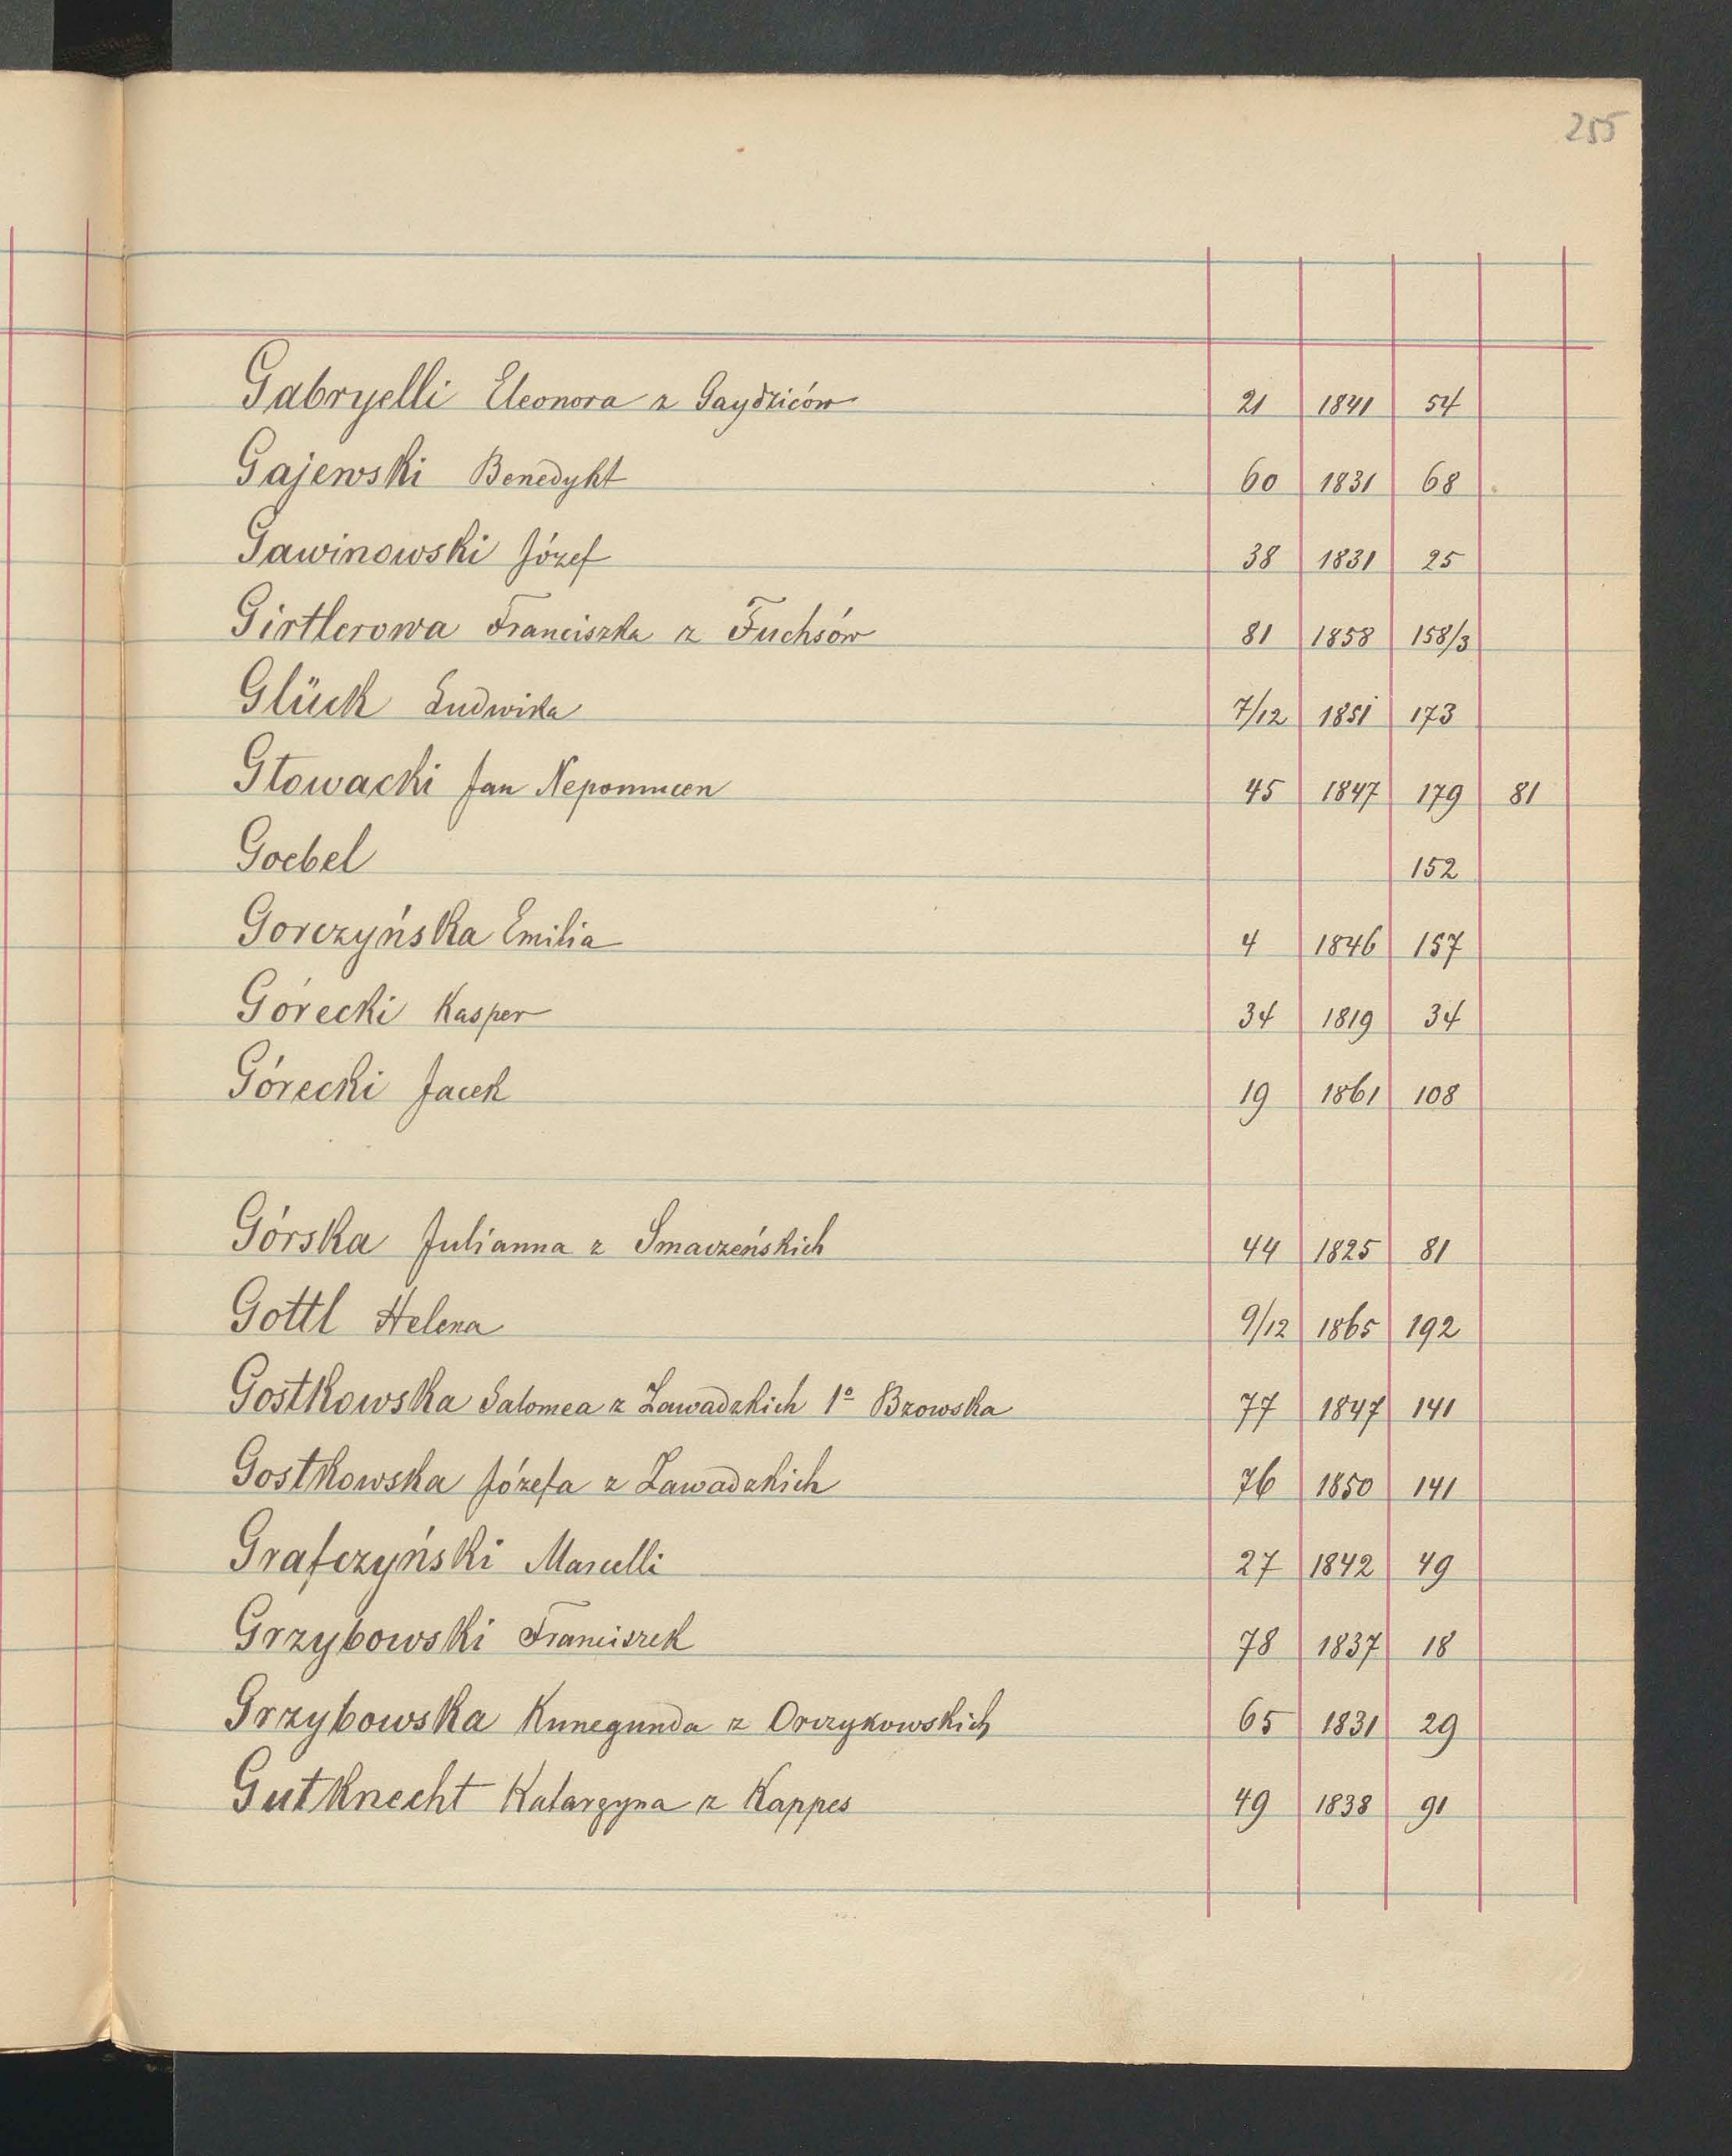 255
Gabryelli Eleonora z Gaydziców 21 1841 54
Gajewski Benedykt 60 1831 68
Gawinowski Józef 38 1831 25
Girtlerowa Franciszka z Fuchsów 81 1858 158/3
Glück Ludwika 7/12 1851 173
Głowacki Jan Nepomucen 45 1847 179 81
Goebel 152
Gorczyńska Emilia 4 1846 157
Górecki Kasper 34 1819 34
Górecki Jacek 19 1861 108
Górska Julianna z Smaczeńskich 44 1825 81
Gottl Helena 9/12 1865 192
Gostkowska Salomea z Zawadzkich 1º Bzowska 77 1847 141
Gostkowska Józefa z Zawadzkich 76 1850 141
Grafczyński Marcelli 27 1842 49
Grzybowski Franciszek 78 1837 18
Grzybowska Kunegunda z Orczykowskich 65 1831 29
Gutknecht Katarzyna z Kappes 49 1838 91